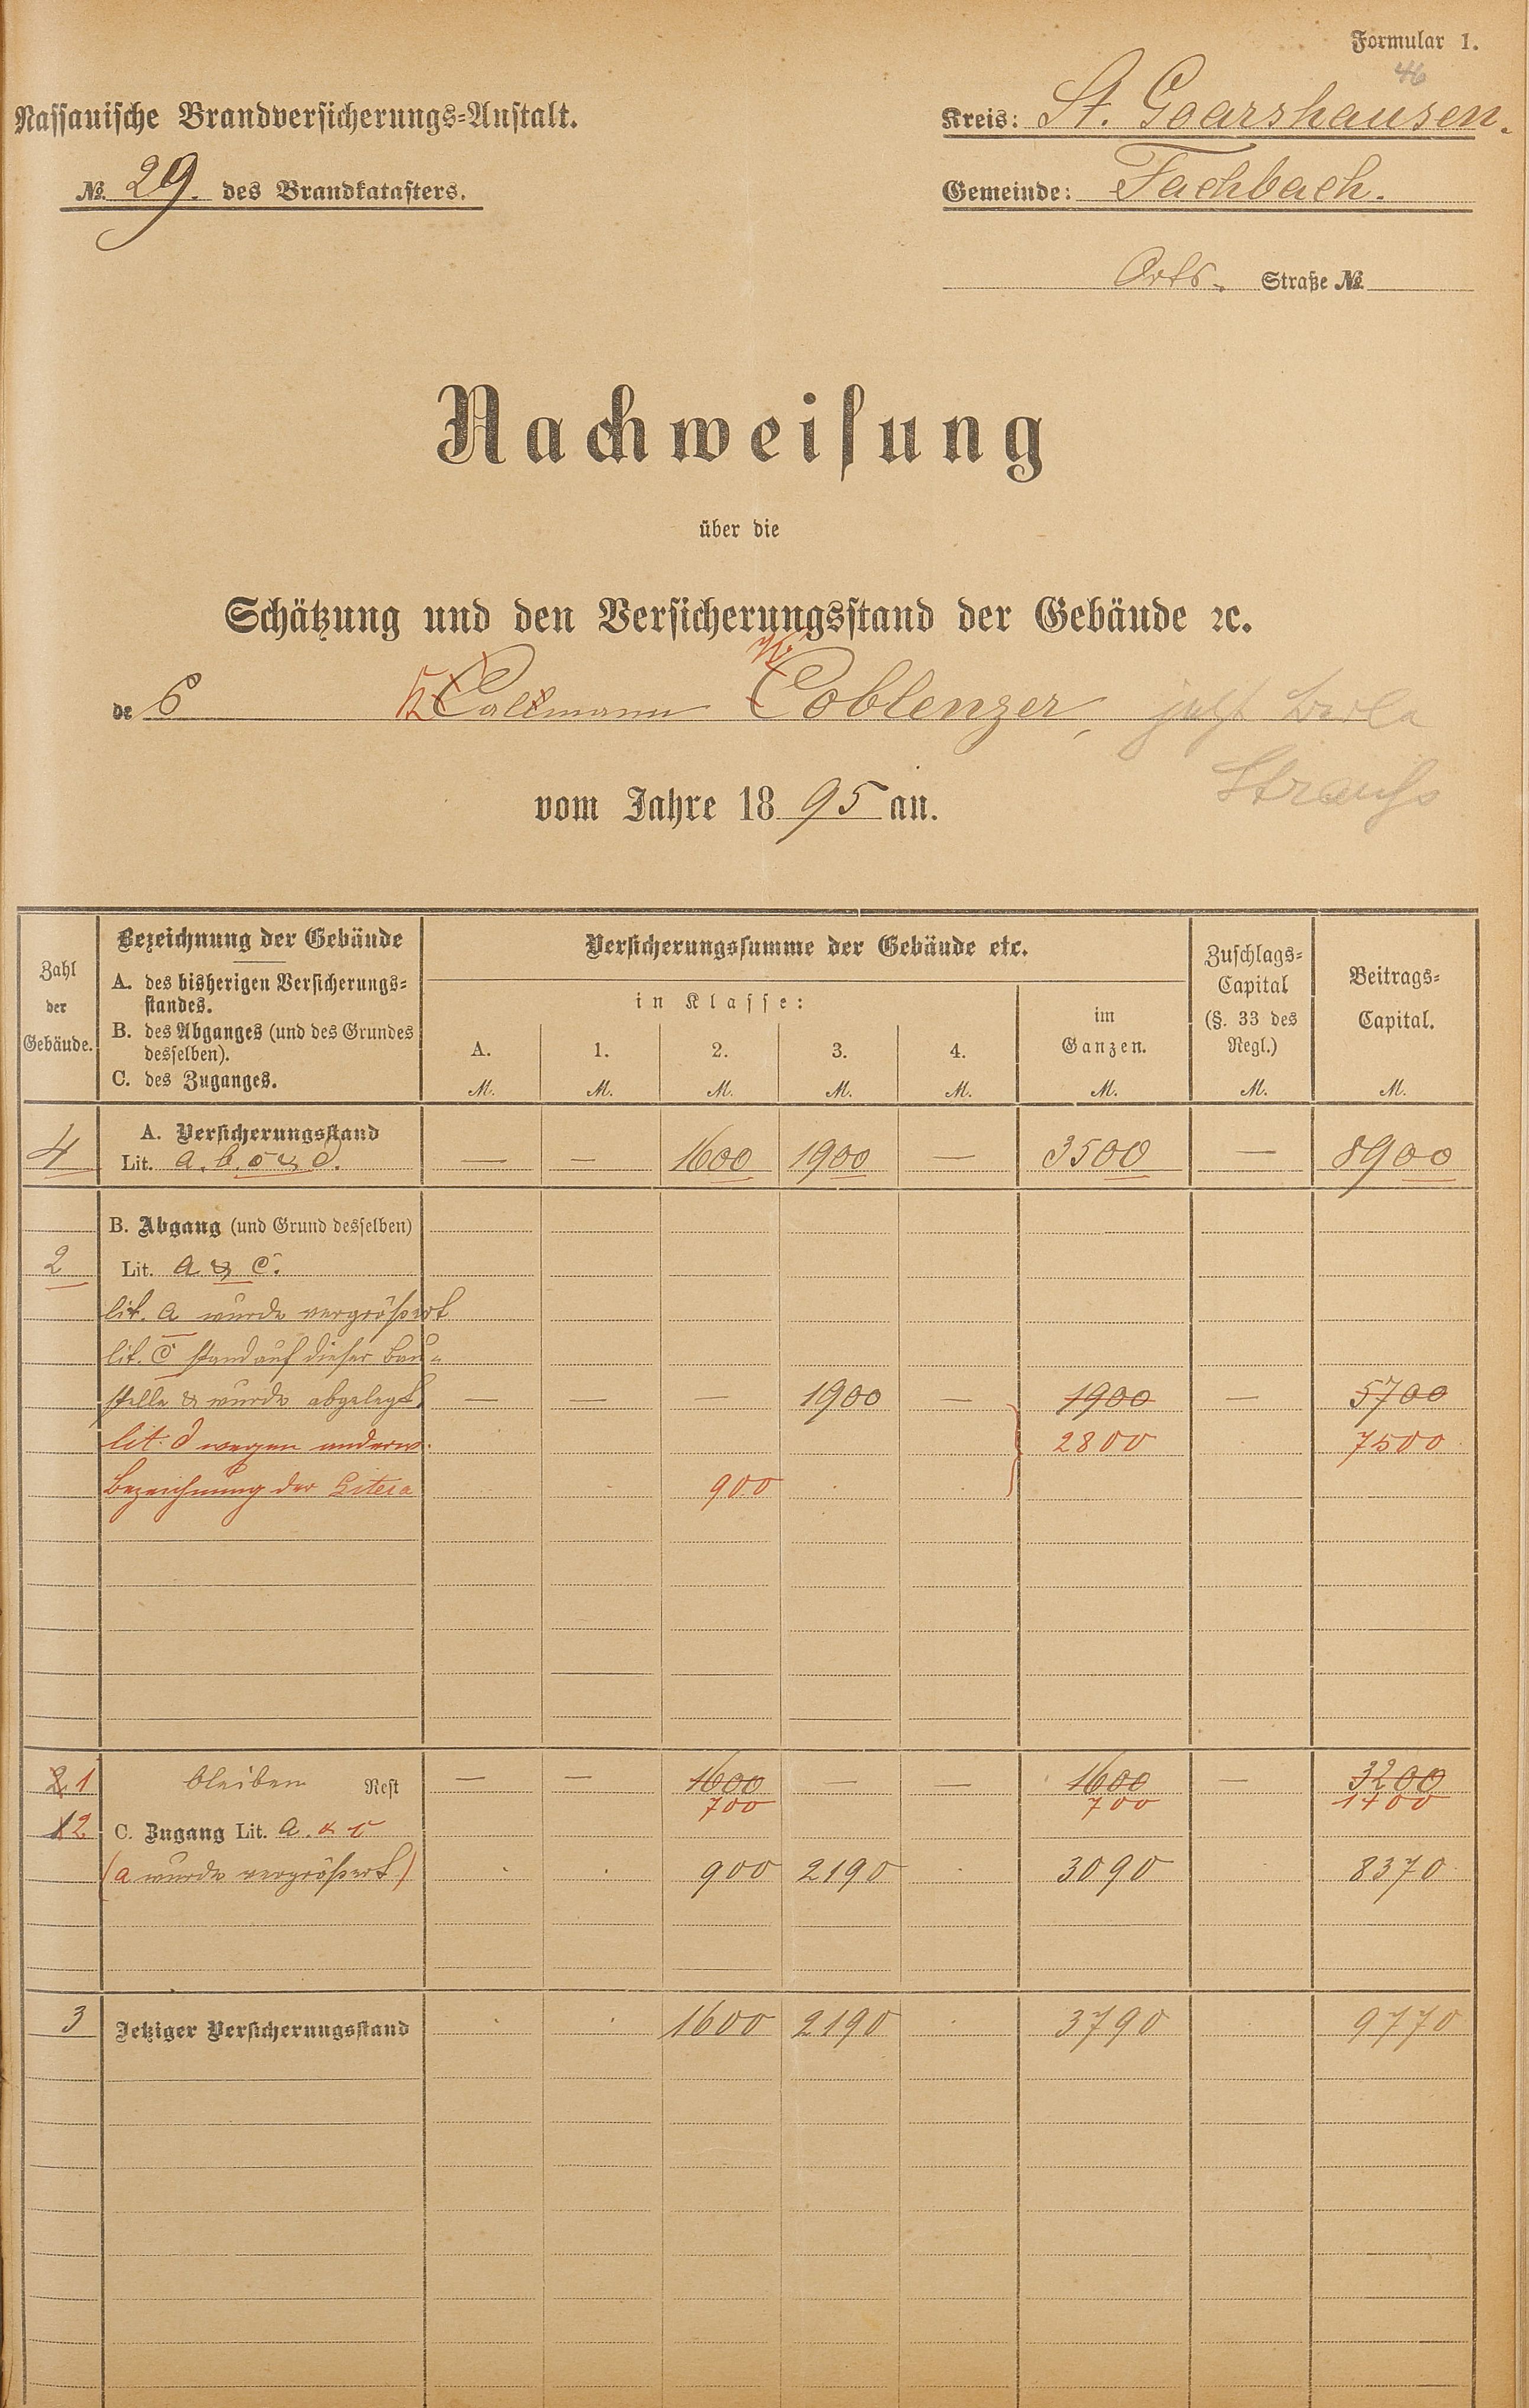 Formular 1.
46
Nassauische Brandversicherungs-Anstalt.
Kreis: St. Goarshausen.
№ 29. des Brandkatasters.
Gemeinde: Fachbach.
Orts- Straße №
Nachweisung
über die
Schätzung und den Versicherungsstand der Gebäude ꝛc.
K.
des K Callmann Coblenzer, jetzt
Strauss
vom Jahre 1895 an.
Zahl der Gebäude.
Bezeichnung der Gebäude
A. des bisherigen Versicherungs-
standes.
B. des Abganges (und des Grundes
desselben).
C. des Zuganges.
Versicherungssumme der Gebäude etc.
in Klasse:
A. 1. 2. 3. 4.
M. M. M. M. M.
im
Ganzen.
M.
Zuschlags-
Capital
(§. 33 des
Regl.)
M.
Beitrags-
Capital.
M.
A. Versicherungsstand
4 Lit. a. b. c & d. — — 1600 1900 — 3500 — 8900
B. Abgang (und Grund desselben)
2 Lit. a & c.
lit. a wurde vergrößert
lit. c stand auf dieser Bau-
stelle & wurde abgelegt. — — — 1900 — 1900 — 5700
lit. d wegen anderw. 2800 7500
Bezeichnung der Litera 900
2 1 bleiben Rest — — 1600 — — 1600 — 3200
700 700 1400
1 2 C. Zugang Lit. a. & c
(a wurde vergrößert) 900 2190 3090 8370
3 Jetziger Versicherungsstand 1600 2190 3790 9770